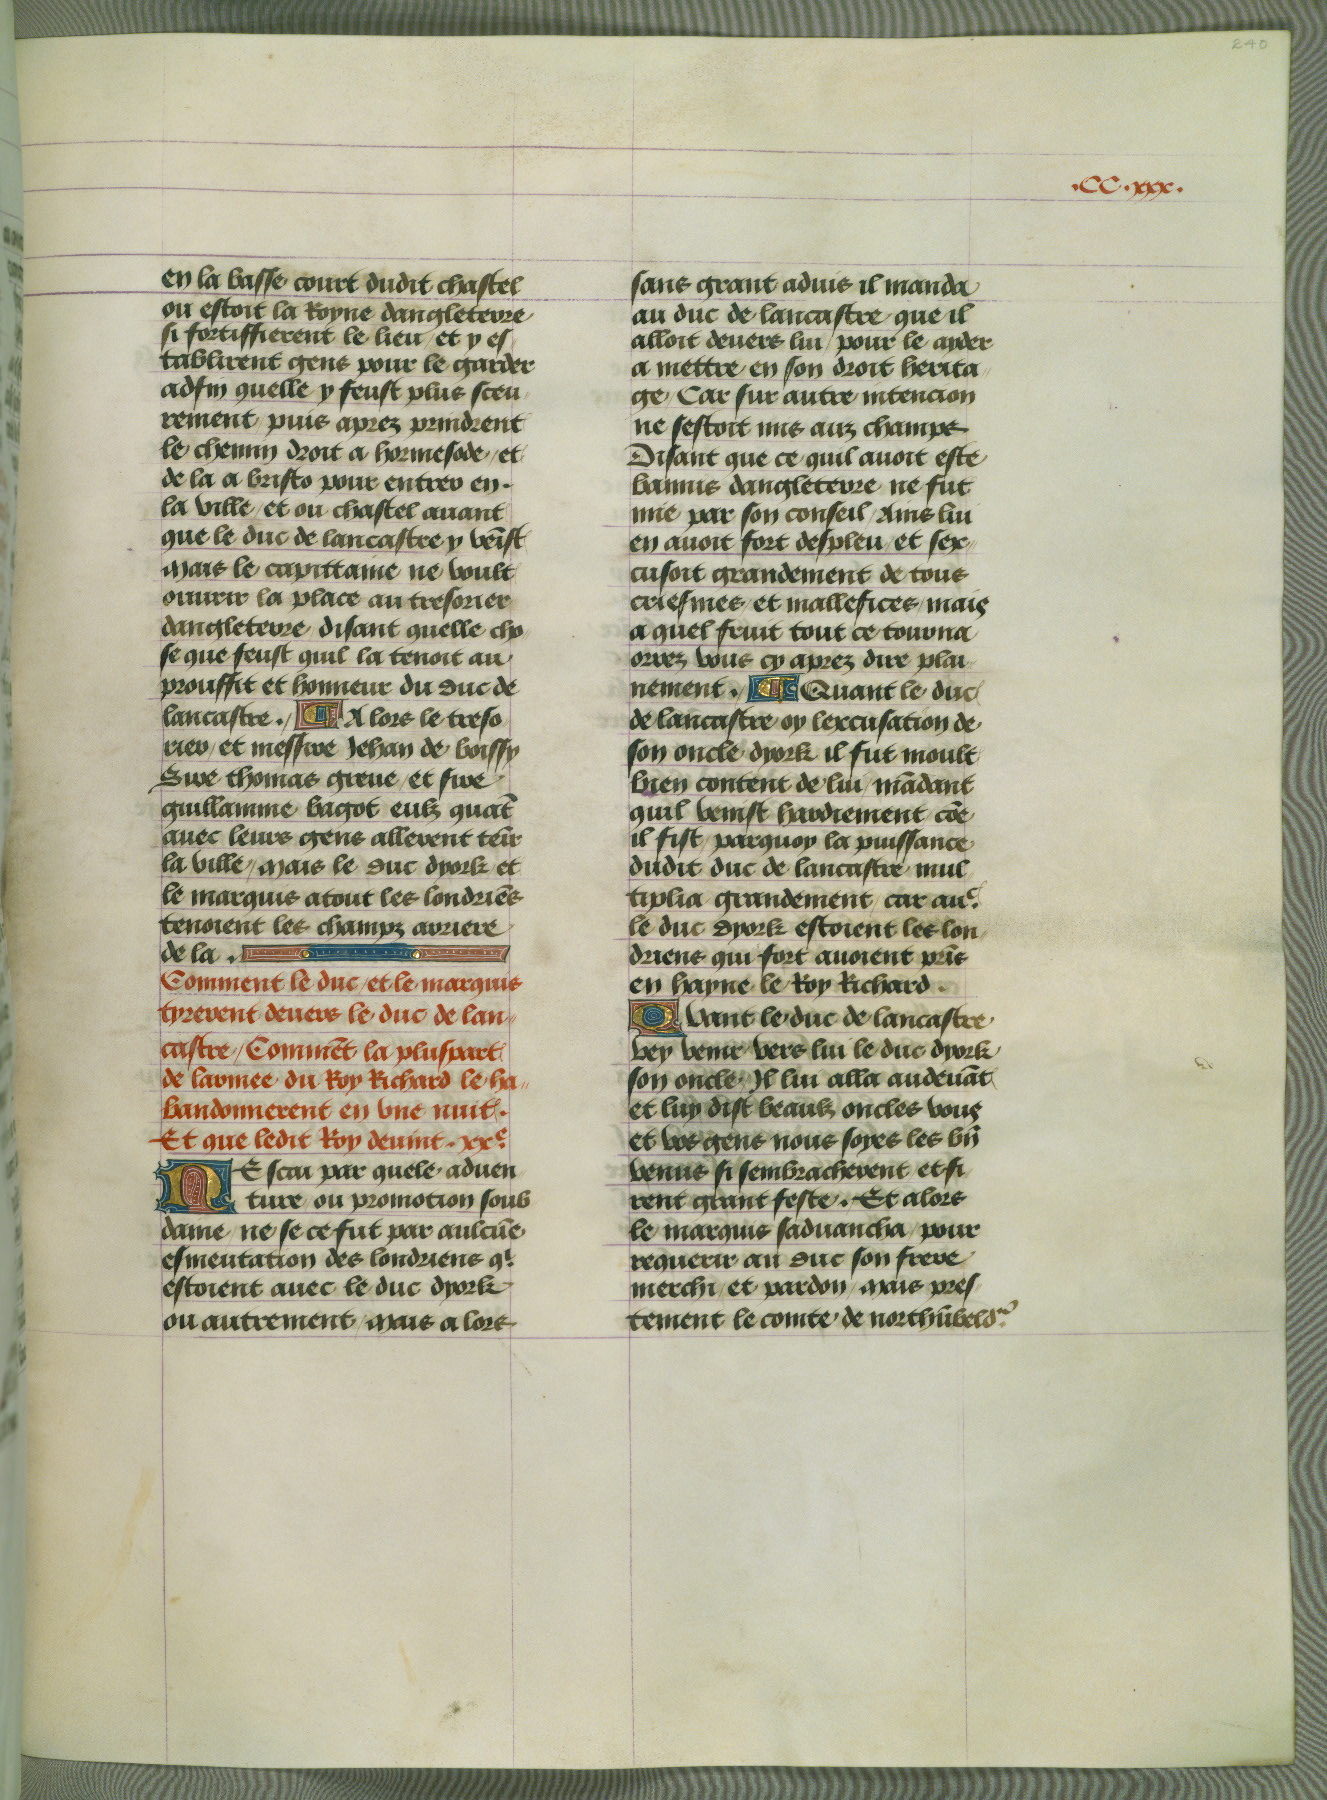 240
.CC.xxx.
en la basse court dudit chastel
ou estoit la Royne dangleterre
si fortiffierent le lieu / et y es
tablirent gens pour le garder
adfin quelle y feust plus sceu
rement / puis aprez prindrent
le chemin droit a hormesode / et
de la a bristo pour entrer en.
la ville / et ou chastel auant
que le duc de lancastre y venist
Mais le capittaine ne voult
ouurir la place au tresorier
dangleterre / disant quelle cho
se que feust quil la tenoit au
prouffit et honneur du duc de
lancastre . A lors le treso
rier / et messire Jehan de boissy
Sire thomas greue / et sire
guillamme bagot eulz quat̄
auec leurs gens allerent ten̄ir
la ville / Mais le duc dyork et
le marquis atout les londriēs
tenoient les champz arriere
de la .
Comment le duc / et le marquis
tyrerent deuers le duc de lan〃
castre / Commēt la pluspart
de larmee du Roy Richard le ha〃
bandonnerent en vne nuit .
Et que ledit Roy deuint . xxᵉ
NE scai par quele aduen
ture ou promotion soub
daine ne se ce fut par aulcūe
esmeutation des londriens qⁱ
estoient auec le duc dyork
ou autrement / Mais a lors
sans grant aduis il manda
au duc de lancastre que il
alloit deuers lui / pour le ayder
a mettre en son droit herita〃
ge / Car sur autre intencion
ne sestoit mis auz champs
Disant que ce quil auoit este
bannis dangleterre ne fut
mie par son conseil / Ains lui
en auoit fort despleu / et sex〃
cusoit grandement de tous
criesmes et mallefices / mais
a quel fruit tout ce tourna
orrez vous cy aprez dire plai
nement . Quant le duc
de lancastre oy lexcusation de
son oncle dyork il fut moult
bien content de lui / mādant
quil venist hardiement / cōe
il fist / parquoy la puissance
dudit duc de lancastre mul
tiplia grandement / car auᶜ
le duc dyork estoient les lon
driens qui fort auoient prīs
en hayne le Roy Richard .
Quant le duc de lancastre
vey venir vers lui le duc dyork
son oncle / Il lui alla audeuāt
et luy dist beaulz oncles vous
et vos gens nous soyes les bn̄
venus si sembracherent et fi
rent grant feste . Et alors
le marquis saduancha / pour
requerir au duc son frere
merchi / et pardon / Mais pres
tement le comte de northūbeldⁿᵉ